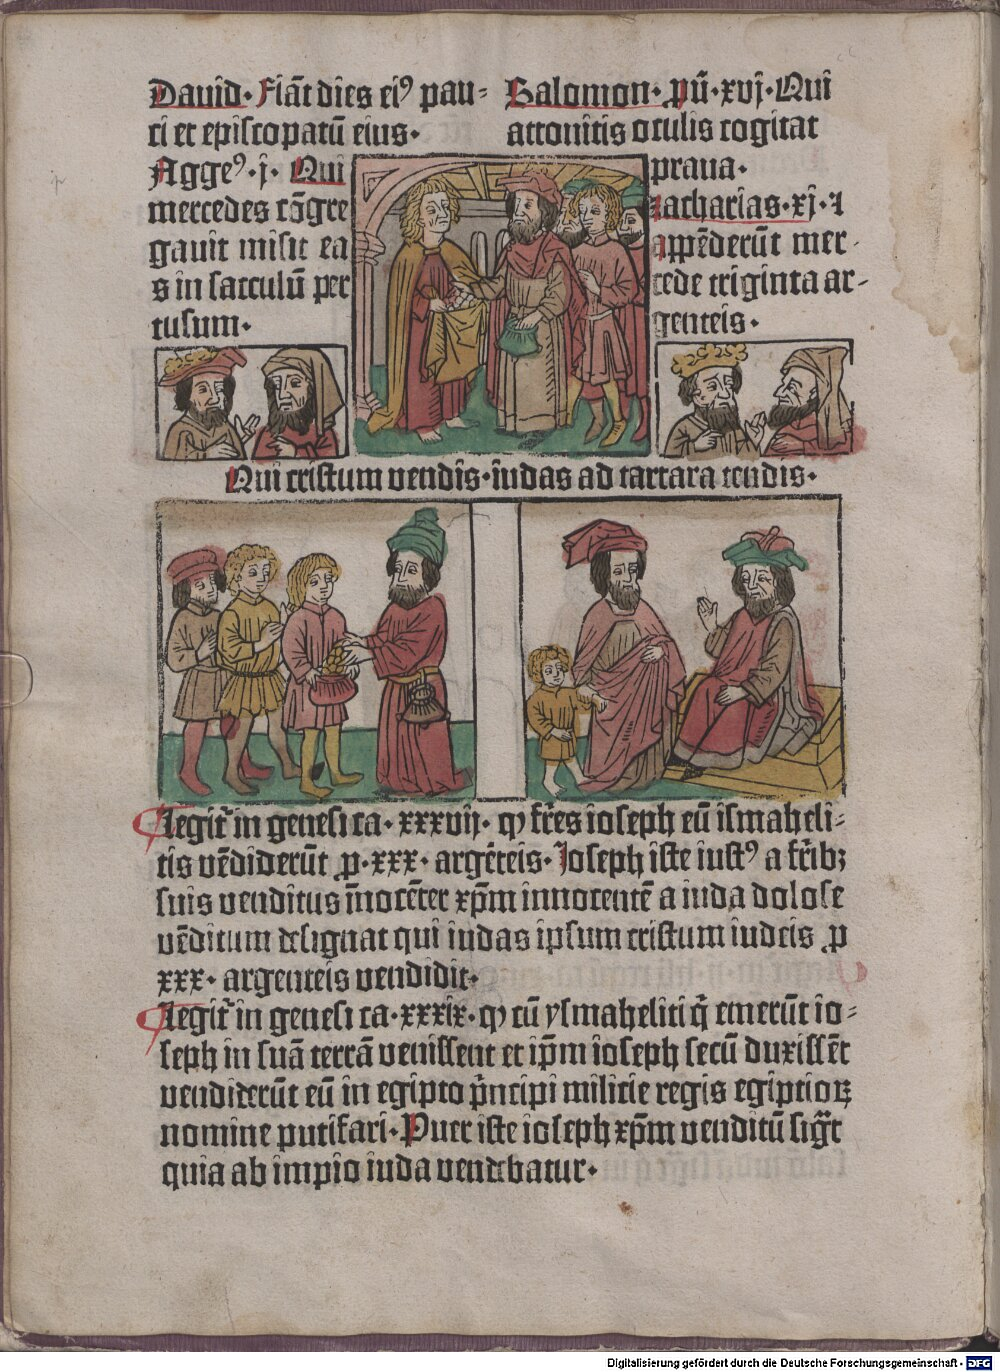 Dauid. Fiāt dies ei⁹ pau-
ci et episcopatū eius.
Agge⁹. j. Qui
mercedes cōgre
gauit misit ea
s in sacculū per
tusum.
Salomon. pū. xvj. Qui
attonitis oculis cogitat
praua.
zacharias. xj. I
appēderūt mer-
cede triginta ar-
genteis.
Qui cristum vendis. iudas ad tartara tendis.
Legit᷑ in genesi ca. xxxvij. ꝙ fr̄es ioseph eū ismaheli-
tis vēdiderūt ꝓ. xxx. argēteis. Joseph iste iust⁹ a fr̄ibꝫ
suis venditus īnocēter xp̄m innocentē a iuda dolose
vēditum designat qui iudas ipsum cristum iudeis ꝓ
xxx. argenteis vendidit.
Legit᷑ in genesi ca. xxxix. ꝙ cū ysmaheliti q̄ emerūt io-
seph in suā terrā venissent et ip̄m ioseph secū duxissēt
vendiderūt eū in egipto p̄ncipi milicie regis egiptioꝝ
nomine putifari. Puer iste ioseph xp̄m venditū sigt
quia ab impio iuda vendebatur.
Digitalisierung gefördert durch die Deutsche Forschungsgemeinschaft - DFG